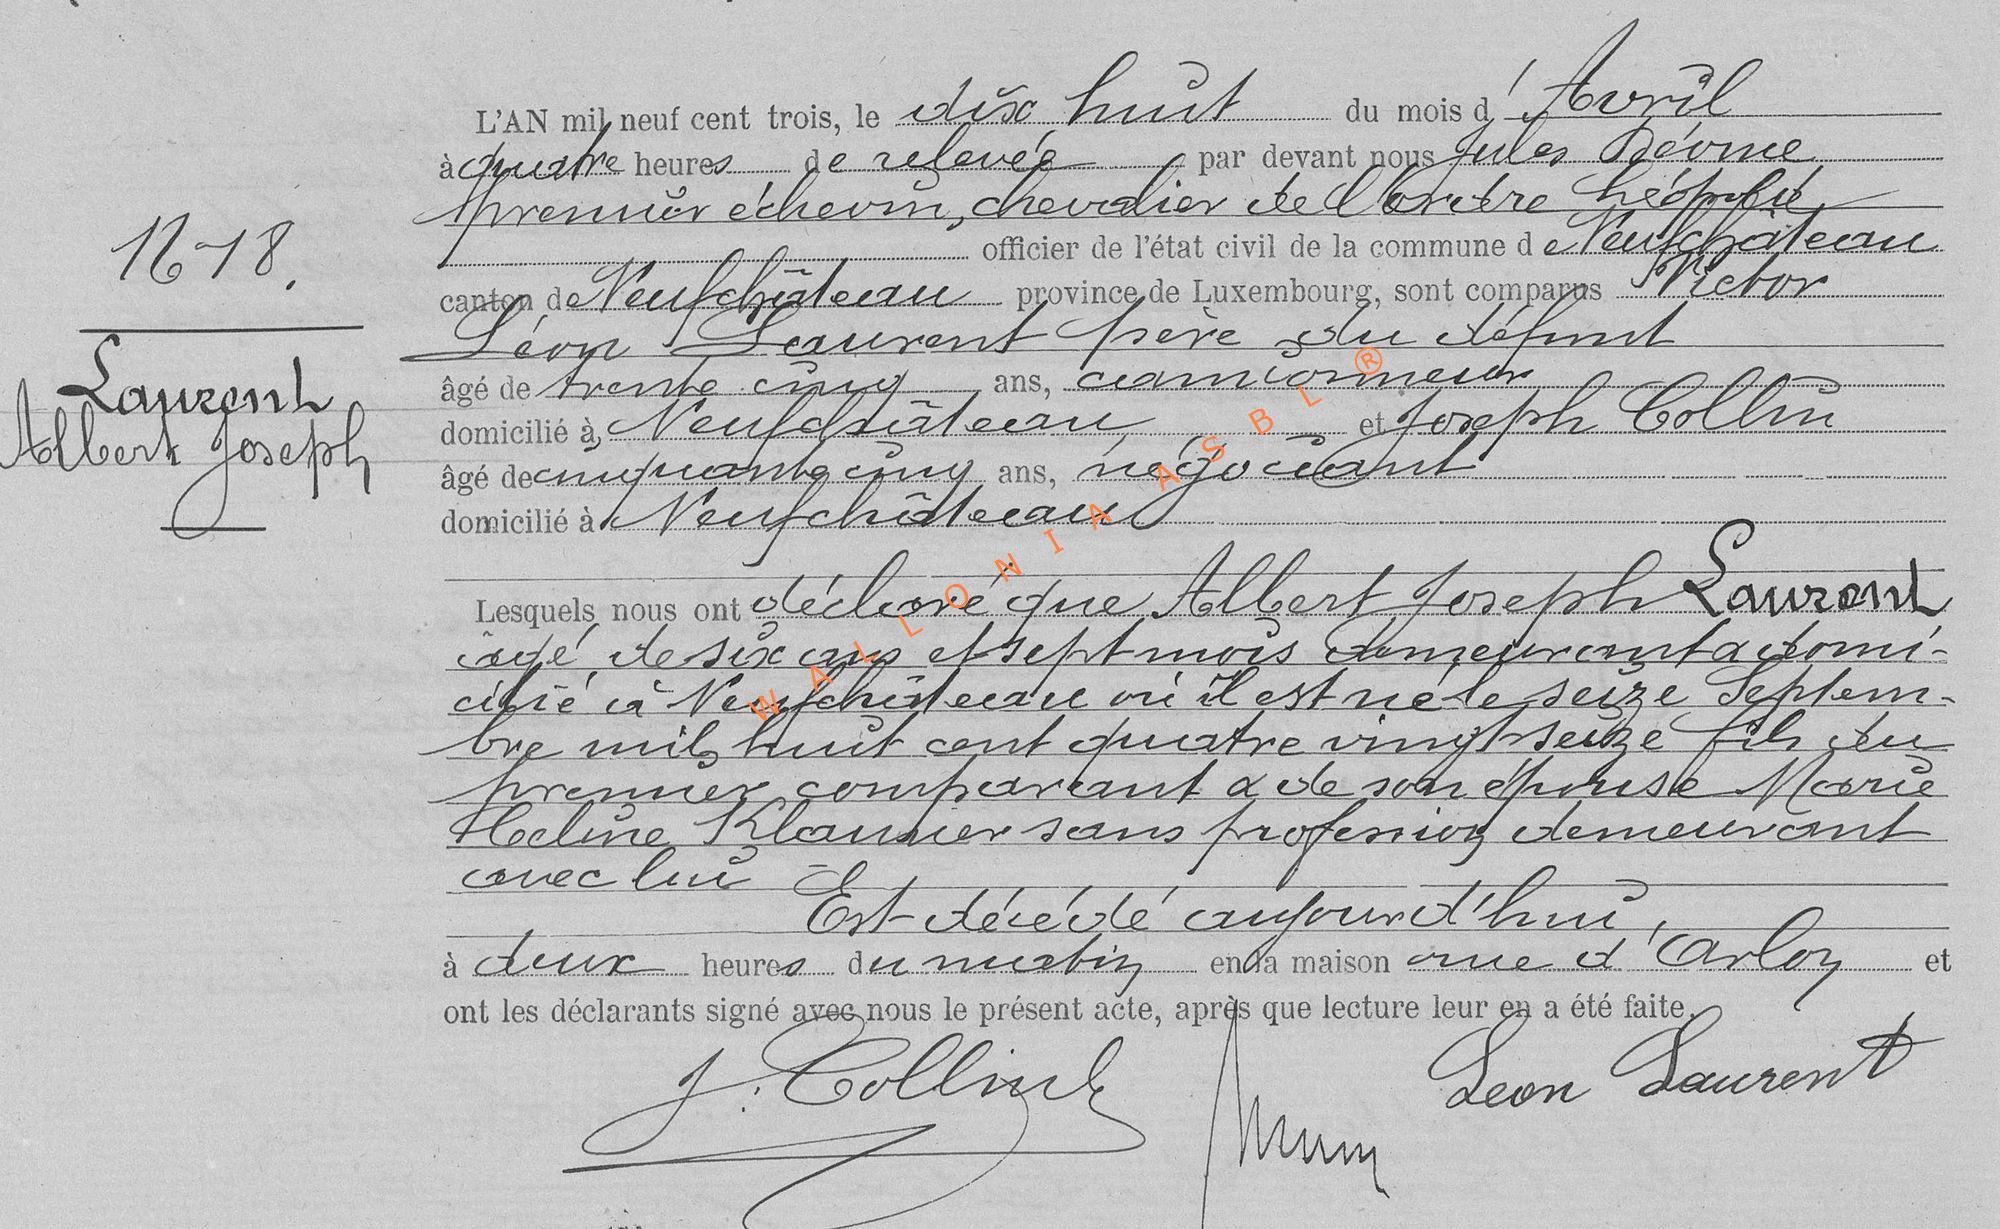 L'AN mil neuf cent trois, le dix huit du mois d'Avril
à quatre heures de relevée par devant nous Jules
premier échevin, chevalier de l'ordre Léopold,
officier de l'état civil de la commune de Neufchâteau
canton de Neufchâteau province de Luxembourg, sont comparus Victor
Léon Laurent père du défunt
âgé de trente cinq ans, camionneur
domicilié à Neufchâteau et Joseph Collin
âgé de cinquante cinq ans, négociant
domicilié à Neufchâteau
Lesquels nous ont déclaré que Albert Joseph Laurent
âgé de six ans et sept mois demeurant & domi-
cilié à Neufchâteau où il est né le seize Septem-
bre mil huit cent quatre vingt seize fils du
premier comparant & de son épouse Marie
Heline sans profession demeurant
avec lui
Est décédé aujourd'hui,
à deux heures du matin en la maison rue d'Arlon et
ont les déclarants signé avec nous le présent acte, après que lecture leur en a été faite.
J. Collin
Leon Laurent
N 18.
Laurent
Albert Joseph
WALLONIA ASBL ®